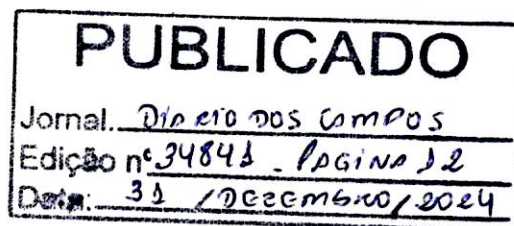 PUBLICADO
Jornal. DIARIO DOS CAMPOS
Edição nº 34841 - PAGINA 12
Data: 31 / DEZEMBRO / 2024